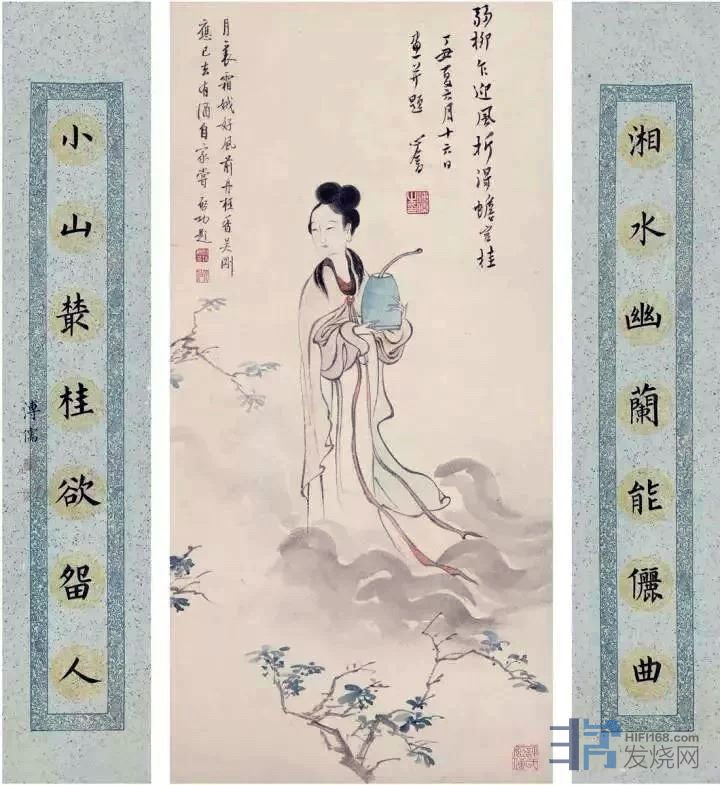 湘水幽蘭能儷曲
弱柳乍迎風折得蟾宮桂
丁丑夏六月十六日
畫并題 心畬
月裏霜娥好風前丹桂香吳剛
應已去有酒自家嘗 啓功題
小山叢桂欲畱人
溥儒
HIFI168.com
发烧网